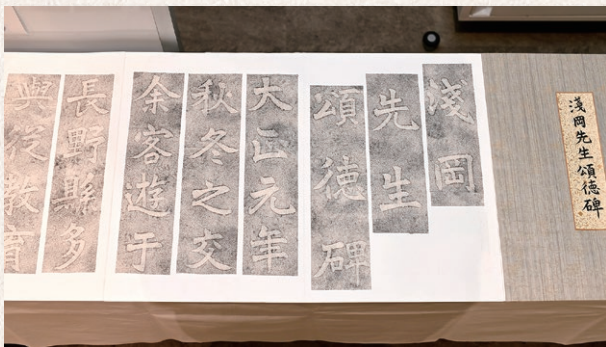 淺岡先生頌德碑
淺岡
先生
頌德碑
大正元年
秋冬之交
余客遊于
長野縣多
與從教育